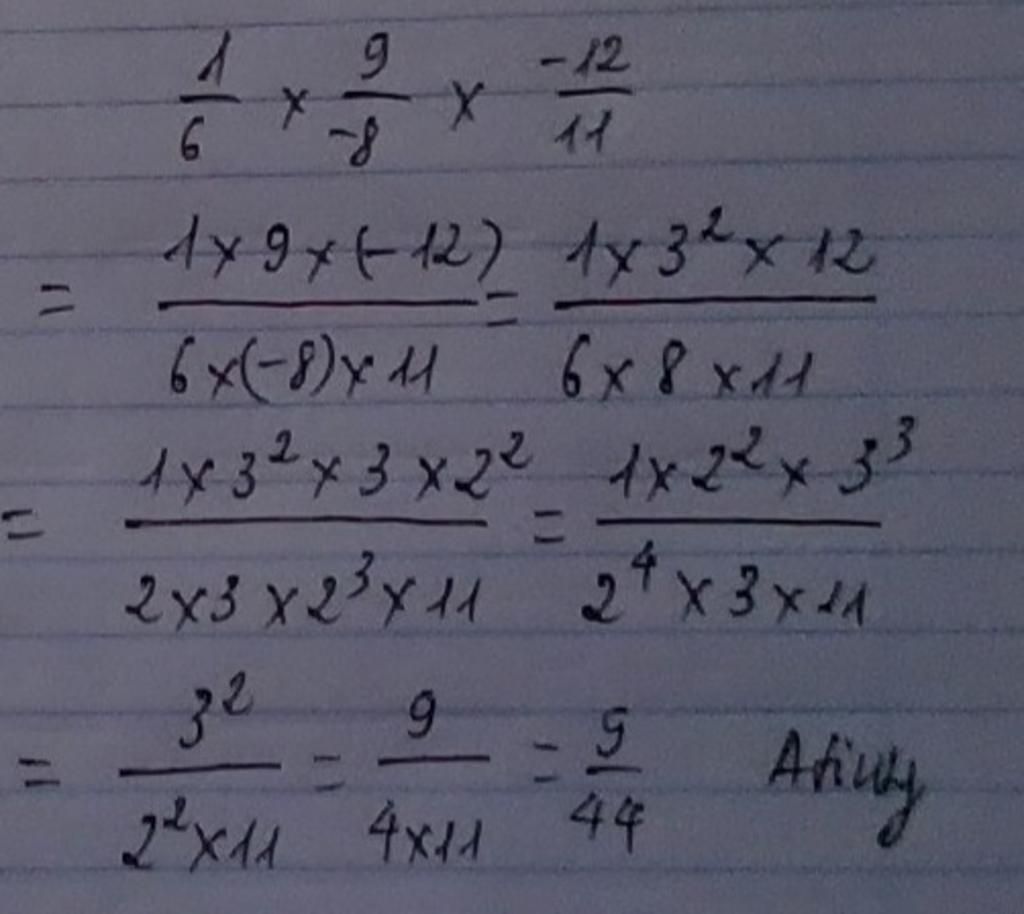 1/6 × 9/-8 × -12/11
= 1×9×(-12)/6×(-8)×11 = 1×3²×12/6×8×11
= 1×3²×3×2²/2×3×2³×11 = 1×2²×3³/2⁴×3×11
= 3²/2²×11 = 9/4×11 = 9/44